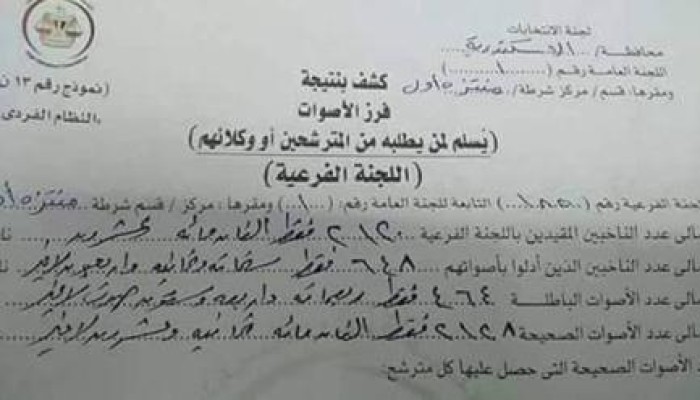 لجنة الانتخابات
محافظة/... الإسكندرية
اللجنة العامة رقم (...١...)
ومقرها: قسم / مركز شرطة/. منتزه أول
(نموذج رقم ١٣ ن
النظام الفردى
كشف بنتيجة
فرز الأصوات
(يُسلم لمن يطلبه من المترشحين أو وكلائهم)
(اللجنة الفرعية)
لجنة الفرعية رقم (...) التابعة للجنة العامة رقم: (..١..) ومقرها: مركز / قسم شرطة منتزه أول
الى عدد الناخبين المقيدين باللجنة الفرعية ٢١٢٠ فقط ألفان ومائه وعشرون
الى عدد الناخبين الذين أدلوا بأصواتهم ٦٤٨ فقط ستمائة وثمانيه واربعون لاغير
الى عدد الأصوات الباطلة ٤٦٤ فقط ربعمائه واربعه وستون لاغير
الى عدد الأصوات الصحيحة ٢١٢٨ فقط ألفان ومائه ثمانيه وعشرون لاغير
د الأصوات الصحيحة التى حصل عليها كل مترشح: